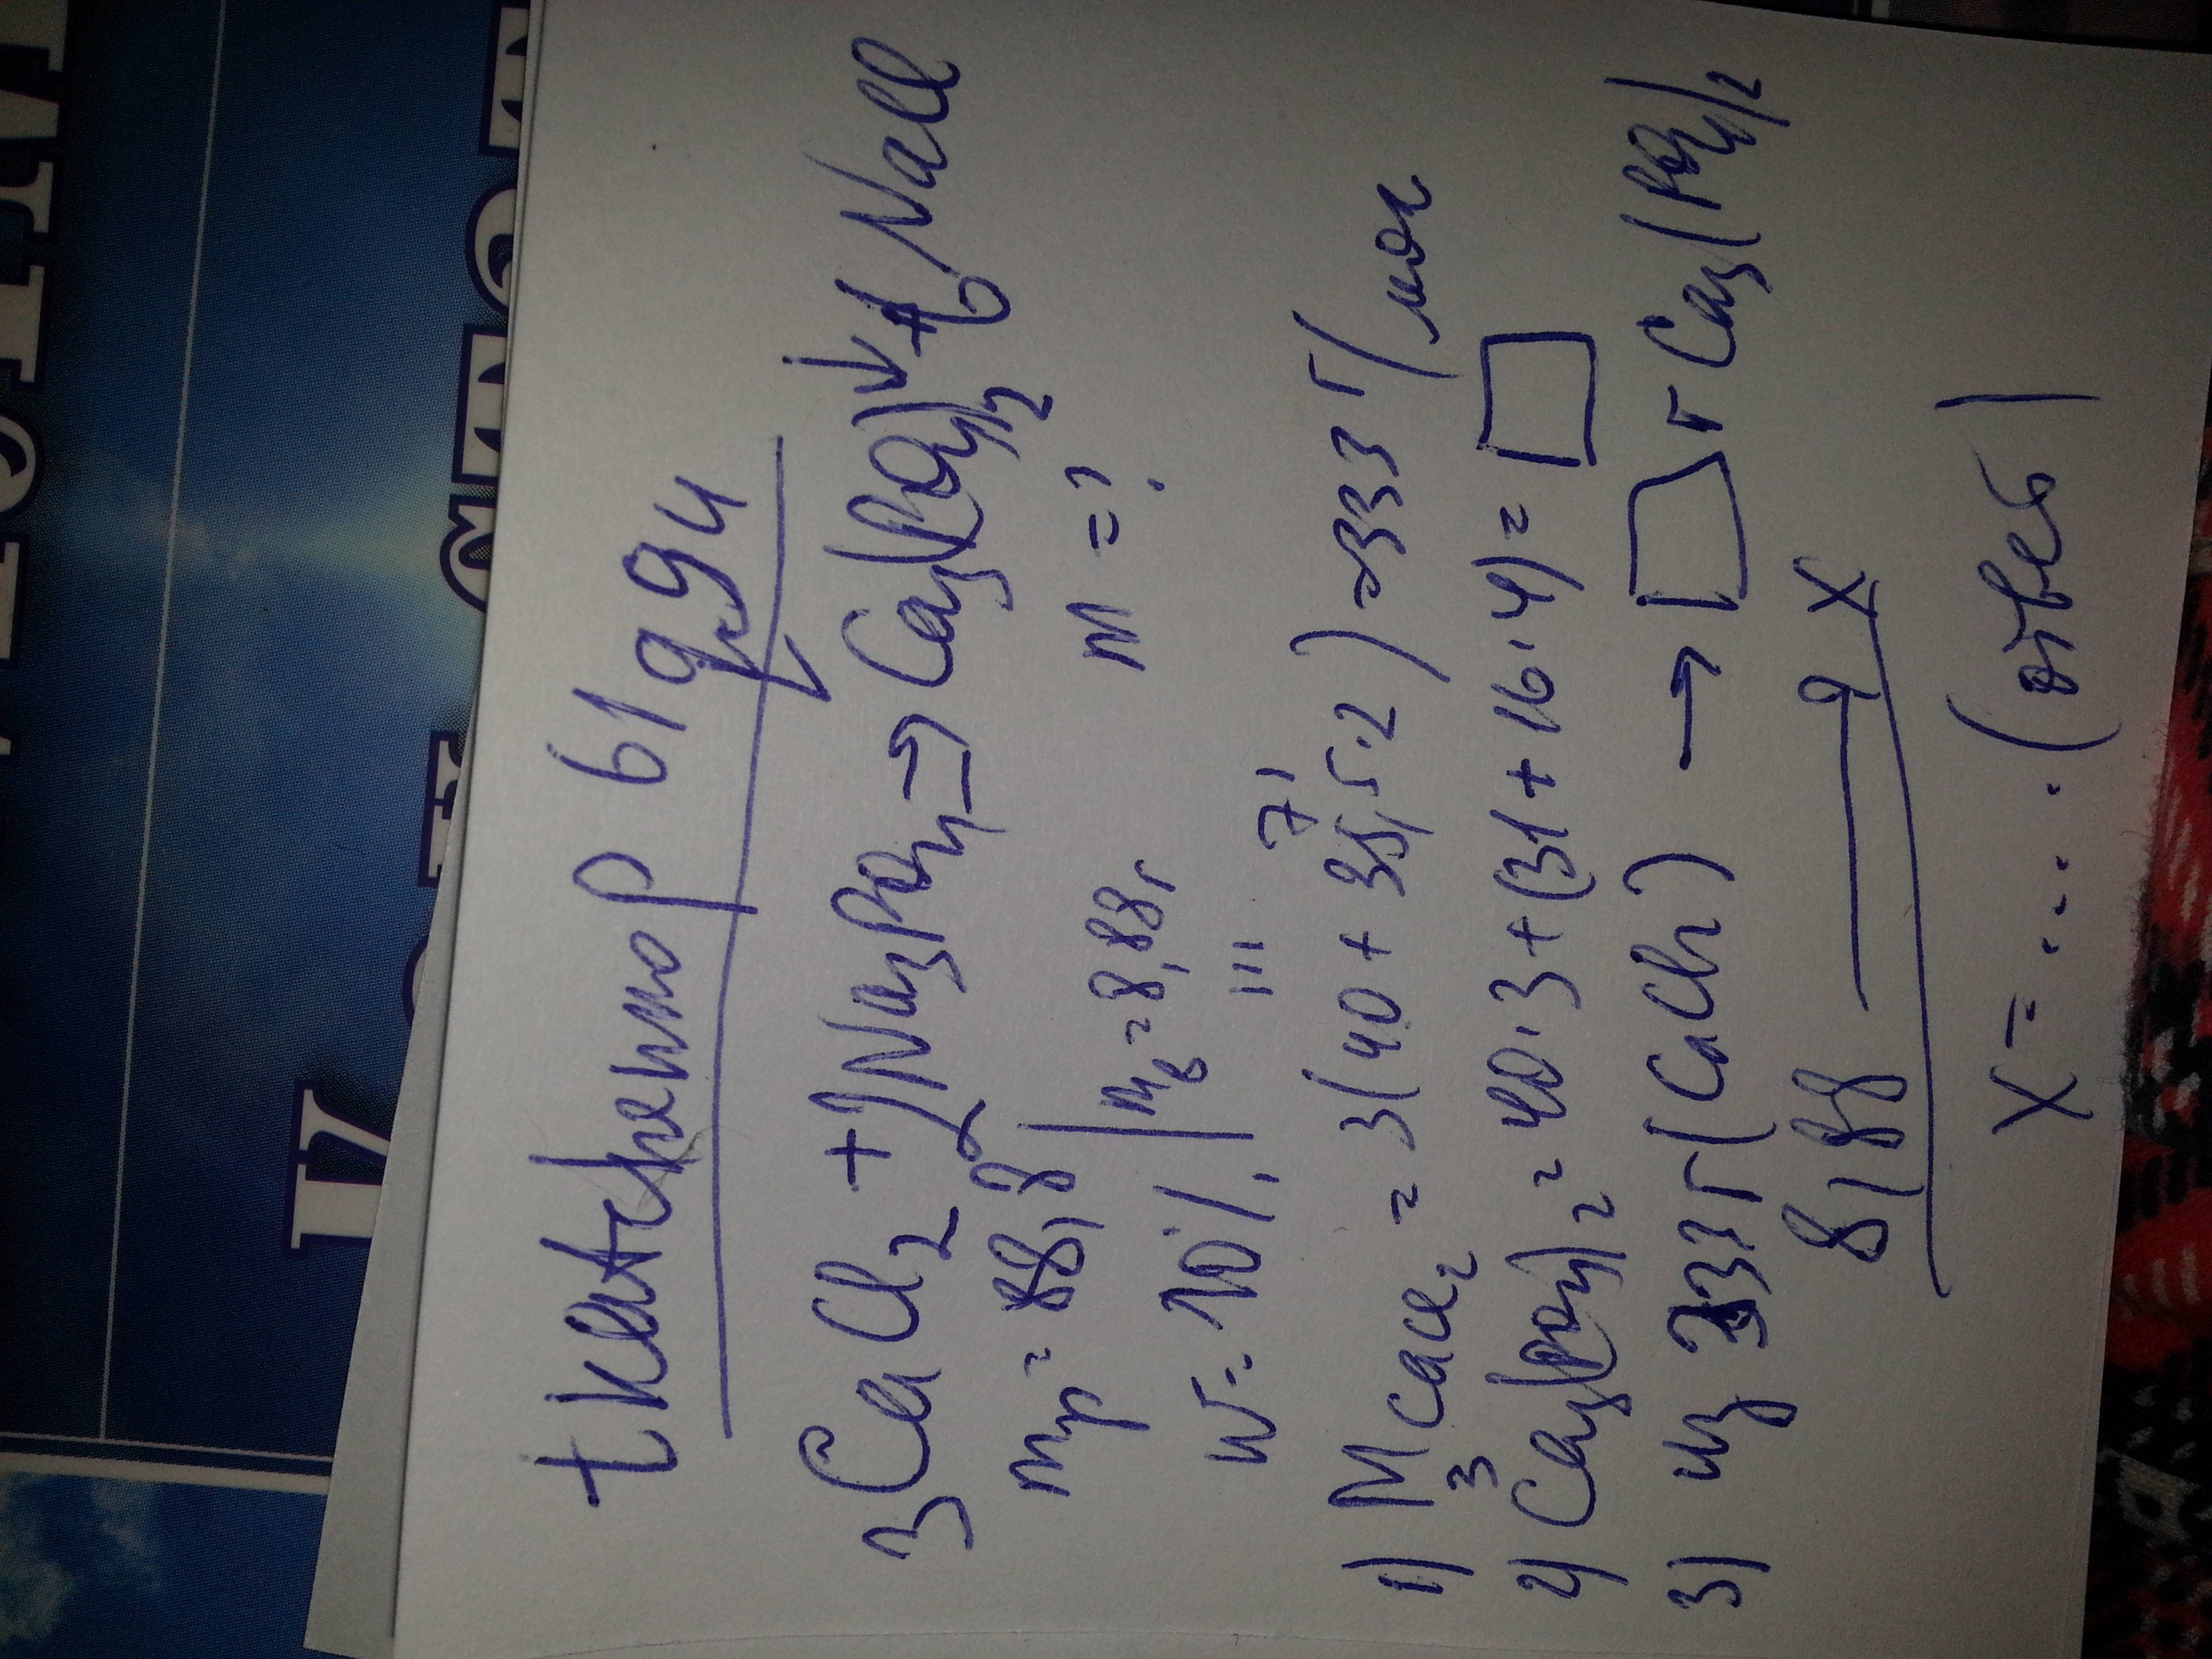 tkatchenmop 61 994
3CaCl₂ + 2Na₃PO₄ ⇒ Ca₃(PO₄)₂↓ + 6NaCl
mр = 88,8 | mв = 8,88г m = ?
W = 10%.
111 71
1) M 3CaCl₂ = 3(40 + 35,5·2) = 333 г/мол
2) Ca₃(PO₄)₂ = 40·3 + (31 + 16·4) = □
3) из 333г (CaCl₂) → □ г Ca₃(PO₄)₂
8,88 — X
X = .... (ответ)